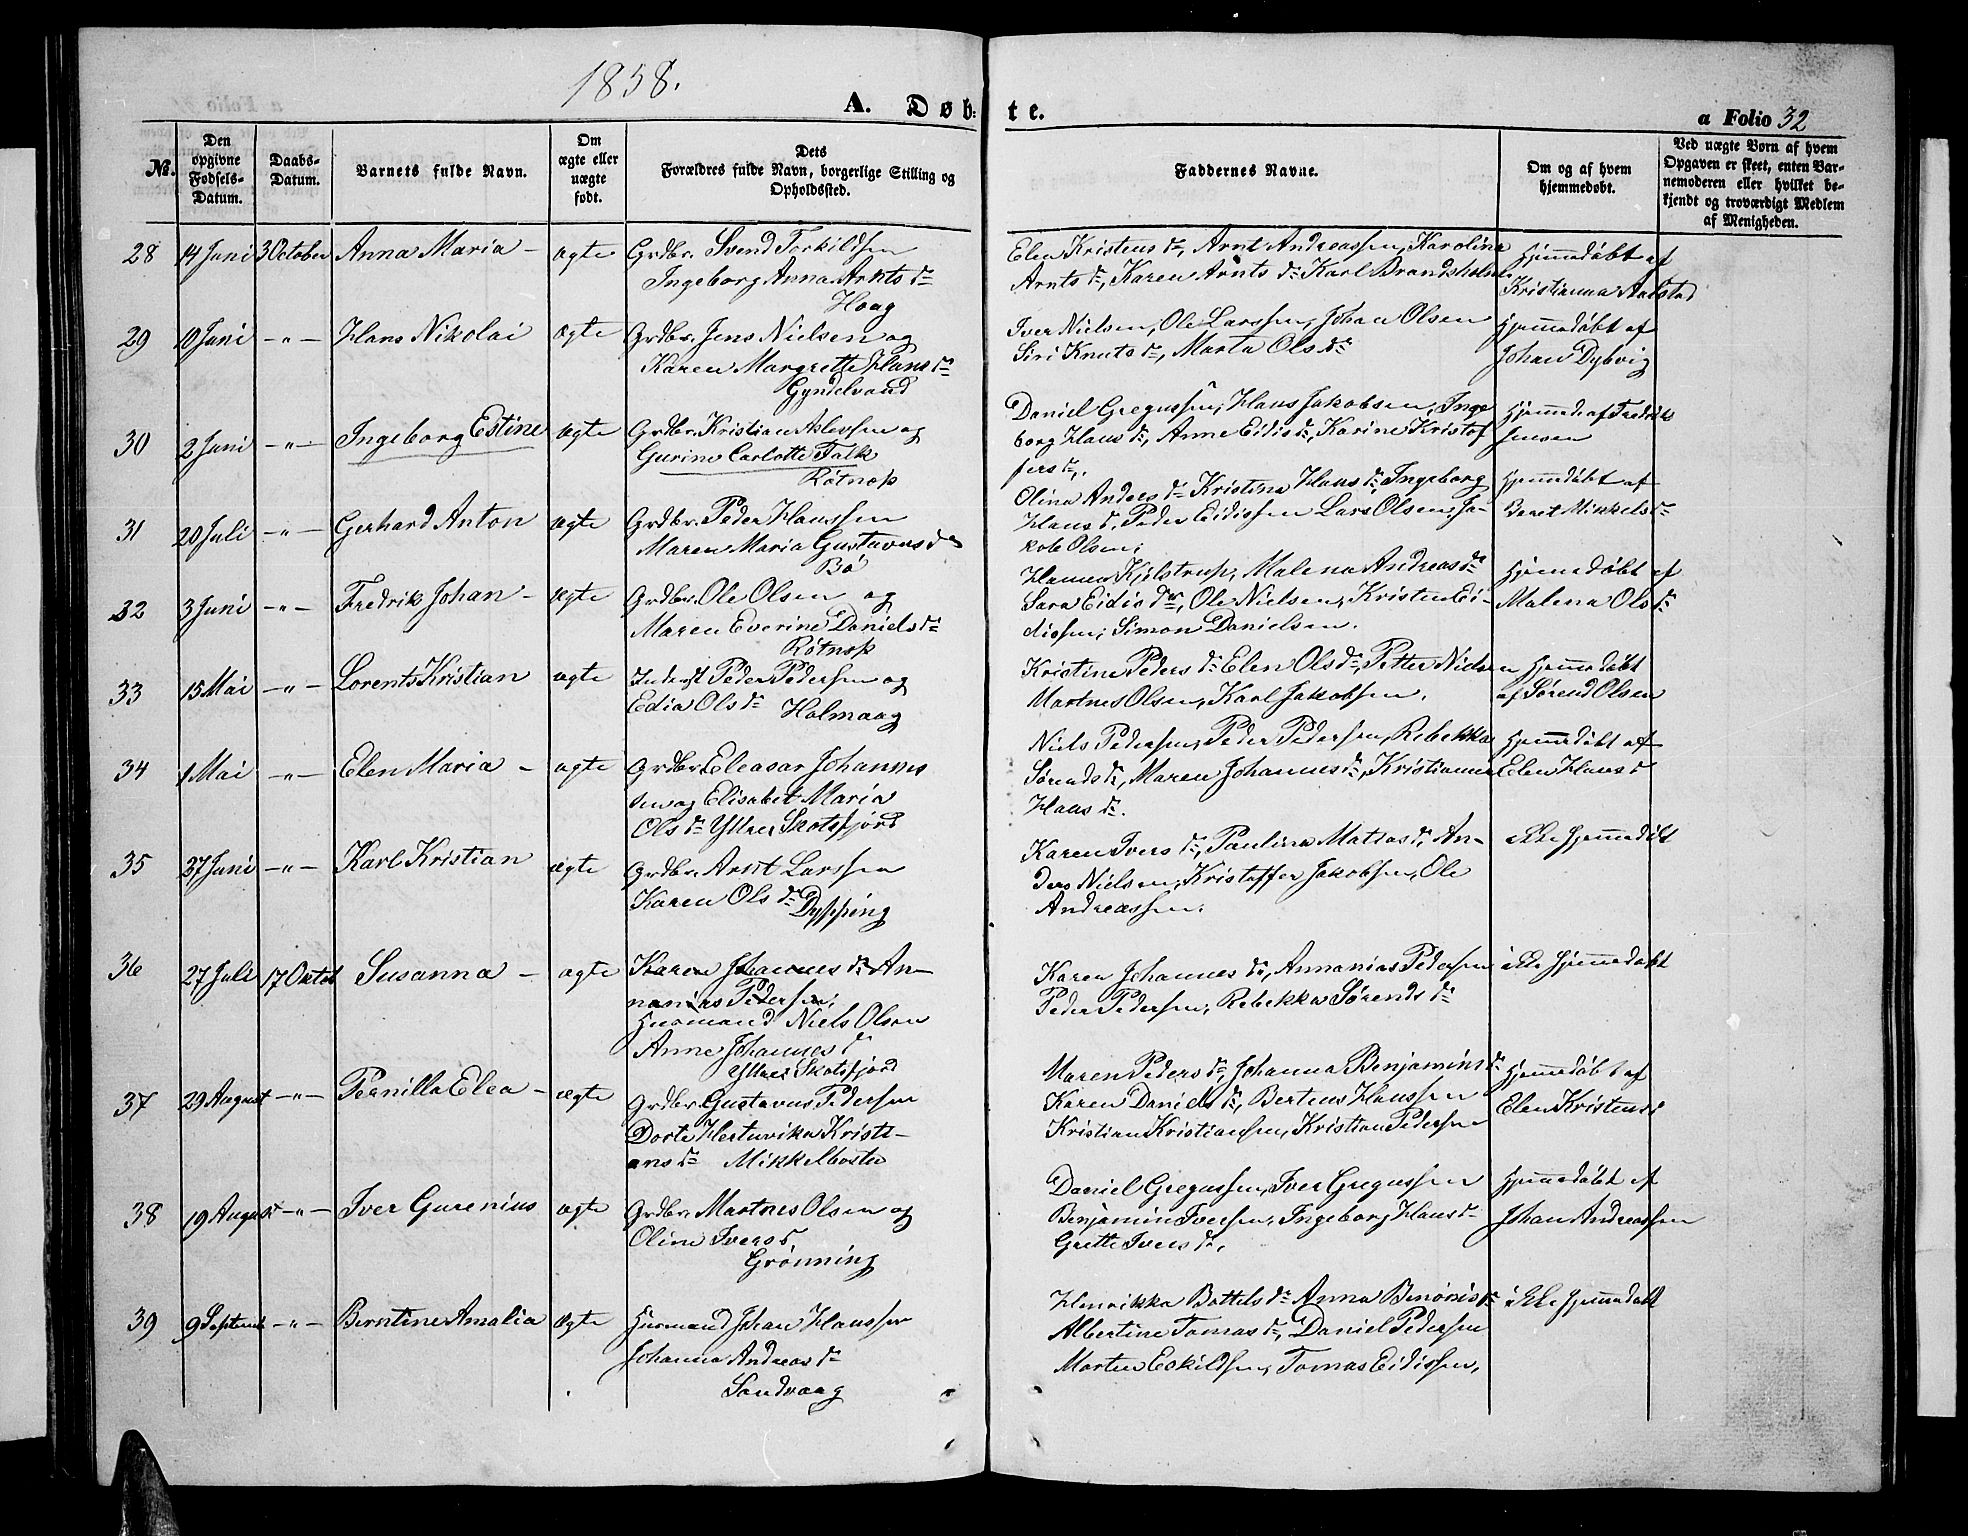 1858.
A. Døb- te.
a Folio 32
No.
Den opgivne Fødsels-Datum.
Daabs-Datum.
Barnets fulde Navn.
Om ægte eller uægte født.
Dets Forældres fulde Navn, borgerlige Stilling og Opholdssted.
Faddernes Navne.
Om og af hvem hjemmedøbt.
Ved uægte Børn af hvem Opgaven er skeet, enten Barnemoderen eller hvilket bekjendt og troværdigt Medlem af Menigheden.
28 14 Juni 3 October Anna Maria - ægte Grdbr. Svend Torkildsen
Ingeborg Anna Arnts dr
Hoag
Elen Kristens dr, Arnt Andreassen, Karolina
Arnts dr, Karen Arnts dr Karl Brandsholm
Hjemmedøbt af
Kristianna Aadstad
29 10 Juni -"- Hans Nikolai ægte Grdbr. Jens Nielsen og
Karen Margrette Hans dr
Gyndelvand
Iver Nielsen, Ole Larssen, Johan Olsen
Siri Knuts dr, Marta Ols dr
Hjemmedøbt af
Johan Dybvig
30 2 Juni -"- Ingeborg Estine ægte Grdbr. Kristian Alexsen og
Gurine Carlotte Falk
Røtnøs
Daniel Gregussen, Hans Jakobsen, Inge
borg Hans dr, Anne Eidis dr, Karine Kristof
fers dr,
Hjemmed af Fredrik
Jensen
31 20 Juli -"- Gerhard Anton ægte Grdbr. Peder Hanssen
Maren Maria Gustavus dr
Bø
Olina Anders dr Kristina Hans dr, Ingeborg
Hans d, Peder Eidissen Lars Olsen, Ja-
kob Olsen;
Hjemmedøbt af
Beret Mikkels dr
32 3 Juni -"- Fredrik Johan - ægte Grdbr. Ole Olsen og
Maren Everine Daniels dr
Røtnøs
Hanna Kjelstrup, Malena Andreas dr
Sara Eidis dr, Ole Nielsen, Kristen Ei-
dissen, Simon Danielsen.
Hjemmedøbt af
Malena Ols dr
33 15 Mai -"- Lorents Kristian ægte Inderst Peder Pedersen og
Edia Ols dr Holmaag
Kristine Peders dr Elen Ols dr, Petter Nielsen
Martnes Olsen, Karl Jakobsen.
Hjemmedøbt
af Sørend Olsen
34 1 Mai -"- Elen Maria - ægte Grdbr. Eleasar Johannes
sen og Elisabet Maria
Ols dr Yttre Skotsfjord
Niels Pedersen, Peder Pedersen, Rebekka
Sørends dr, Maren Johannes dr, Kristianna
Hans dr.
Hjemmedøbt af
Elen Hans d
35 27 Juni -"- Karl Kristian ægte Grdbr. Arnt Larssen
Karen Ols dr Dypping
Karen Ivers dr, Paulina Matias dr, An-
ders Nielsen, Kristoffer Jakobsen, Ole
Andreassen.
ikke hjemmedøbt
36 27 Juli 17 Oktob Susanna - ægte Karen Johannes dr An-
nanias Pedersen,
Husmand Niels Olsen
Anne Johannes d
Yttre Skotsfjord
Karen Johannes dr, Annanias Pedersen
Peder Pedersen, Rebekka Sørends dr
ikke hjemmedøbt
37 29 August -"- Pernilla Elea - ægte Grdbr. Gustavus Pedersen
Dorte Hertuvika Kristi-
ans dr Mikkelbostø
Maren Peders dr, Johanna Benjamins dr
Karen Daniels dr, Berteus Hanssen
Kristian Kristiansen, Kristian Pedersen
Hjemmedøbt af
Elen Kristens d
38 19 August -"- Iver Gurenius ægte Grdbr. Martnes Olsen og
Oline Ivers d
Grønning
Daniel Gregussen, Iver Gregussen
Benjamin Iversen, Ingeborg Hans dr
Grette Ivers dr,
Hjemmedøbt af
Johan Andreassen
39 9 Septemb -"- Berntine Amalia ægte Husmand Johan Hanssen
Johanna Andreas dr
Sandvaag
Henrikka Bottels dr Anna Benonis dr
Albertine Tomas dr, Daniel Pedersen
Morten Eskildsen, Tomas Eidissen,
ikke hjemmedøbt